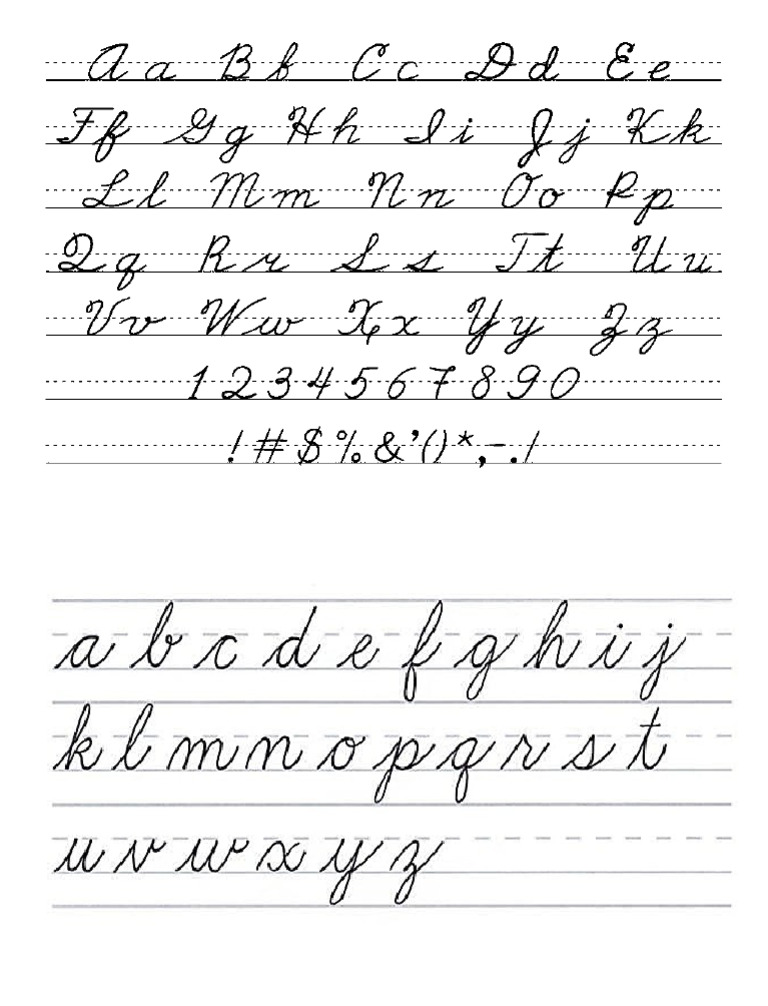 A a B b C c D d E e
F f G g H h I i J j K k
L l M m N n O o P p
Q q R r S s T t U u
V v W w X x Y y Z z
1 2 3 4 5 6 7 8 9 0
! # $ % & ' ( ) * , - . /
a b c d e f g h i j
k l m n o p q r s t
u v w x y z